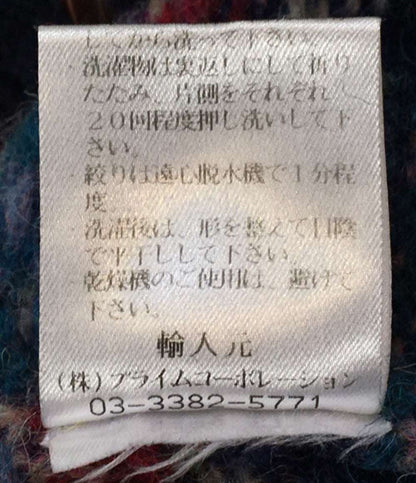 してから洗って下さい。
・洗濯物は裏返しにして折り
たたみ、片側をそれぞれ
20回程度押し洗いして下
さい。
・絞りは遠心脱水機で1分程
度。
・洗濯後は、形を整えて日陰
で平干しして下さい。
・乾燥機のご使用は、避けて
下さい。
輸入元
(株)プライムコーポレーション
03-3382-5771